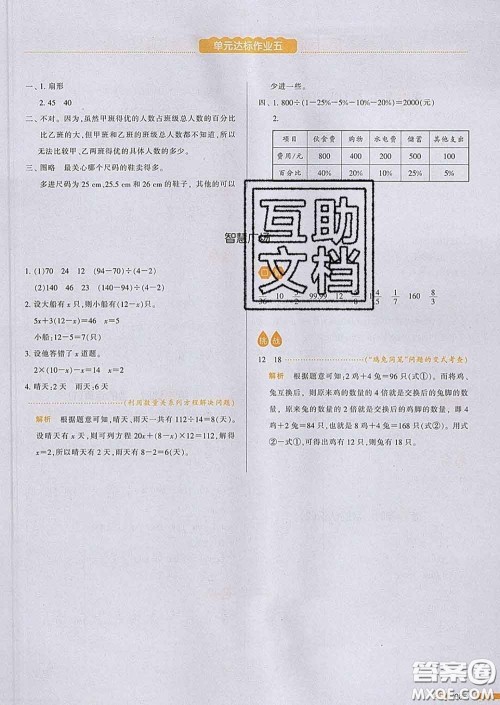 单元达标作业五
一、1.扇形
2.45 40
二、不对。因为,虽然甲班得优的人数占班级总人数的百分比
比乙班的大,但甲班和乙班的班级总人数都不知道,所以
无法比较甲、乙两班得优的具体人数的多少。
三、图略 最关心哪个尺码的鞋卖得多。
多进尺码为25 cm,25.5 cm和26 cm的鞋子,其他的可以
少进一些。
四、1.800÷(1-25%-5%-10%-20%)=2000(元)
2.
项目 伙食费 购物 水电费 储蓄 其他支出
费用/元 800 400 200 500 100
百分比 40% 20% 10% 25% 5%
智慧广场
1.(1)70 24 12 (94-70)÷(4-2)
(2)140 46 23 (140-94)÷(4-2)
2.设大船有x只,则小船有(12-x)只。
5x+3(12-x)=46 x=5
小船:12-5=7(只)
3.设他答错了x道题。
2(10-x)-x=14 x=2
4.晴天:2天 雨天:6天
(利用数量关系列方程解决问题)
解析 根据题意可知,晴天、雨天一共有112÷14=8(天)。
设晴天有x天,则可列方程20x+(8-x)×12=112,解得
x=2。所以,晴天有2天,雨天有8-2=6(天)。
36 10 99.99 160 8/3
挑战
12 18
("鸡兔同笼"问题的变式考查)
解析 根据题意可知:2鸡+4兔=96只(式①)。而将鸡、
兔互换后,则原来鸡的数量的4倍就是交换后的兔脚的数
量,原来兔的数量的2倍就是交换后的鸡脚的数量,即
4鸡+2兔=84只,也就是8鸡+4兔=168只(式②)。用式
②-式①,可得出鸡有12只,则兔有18只。
互助
文档
答案圈